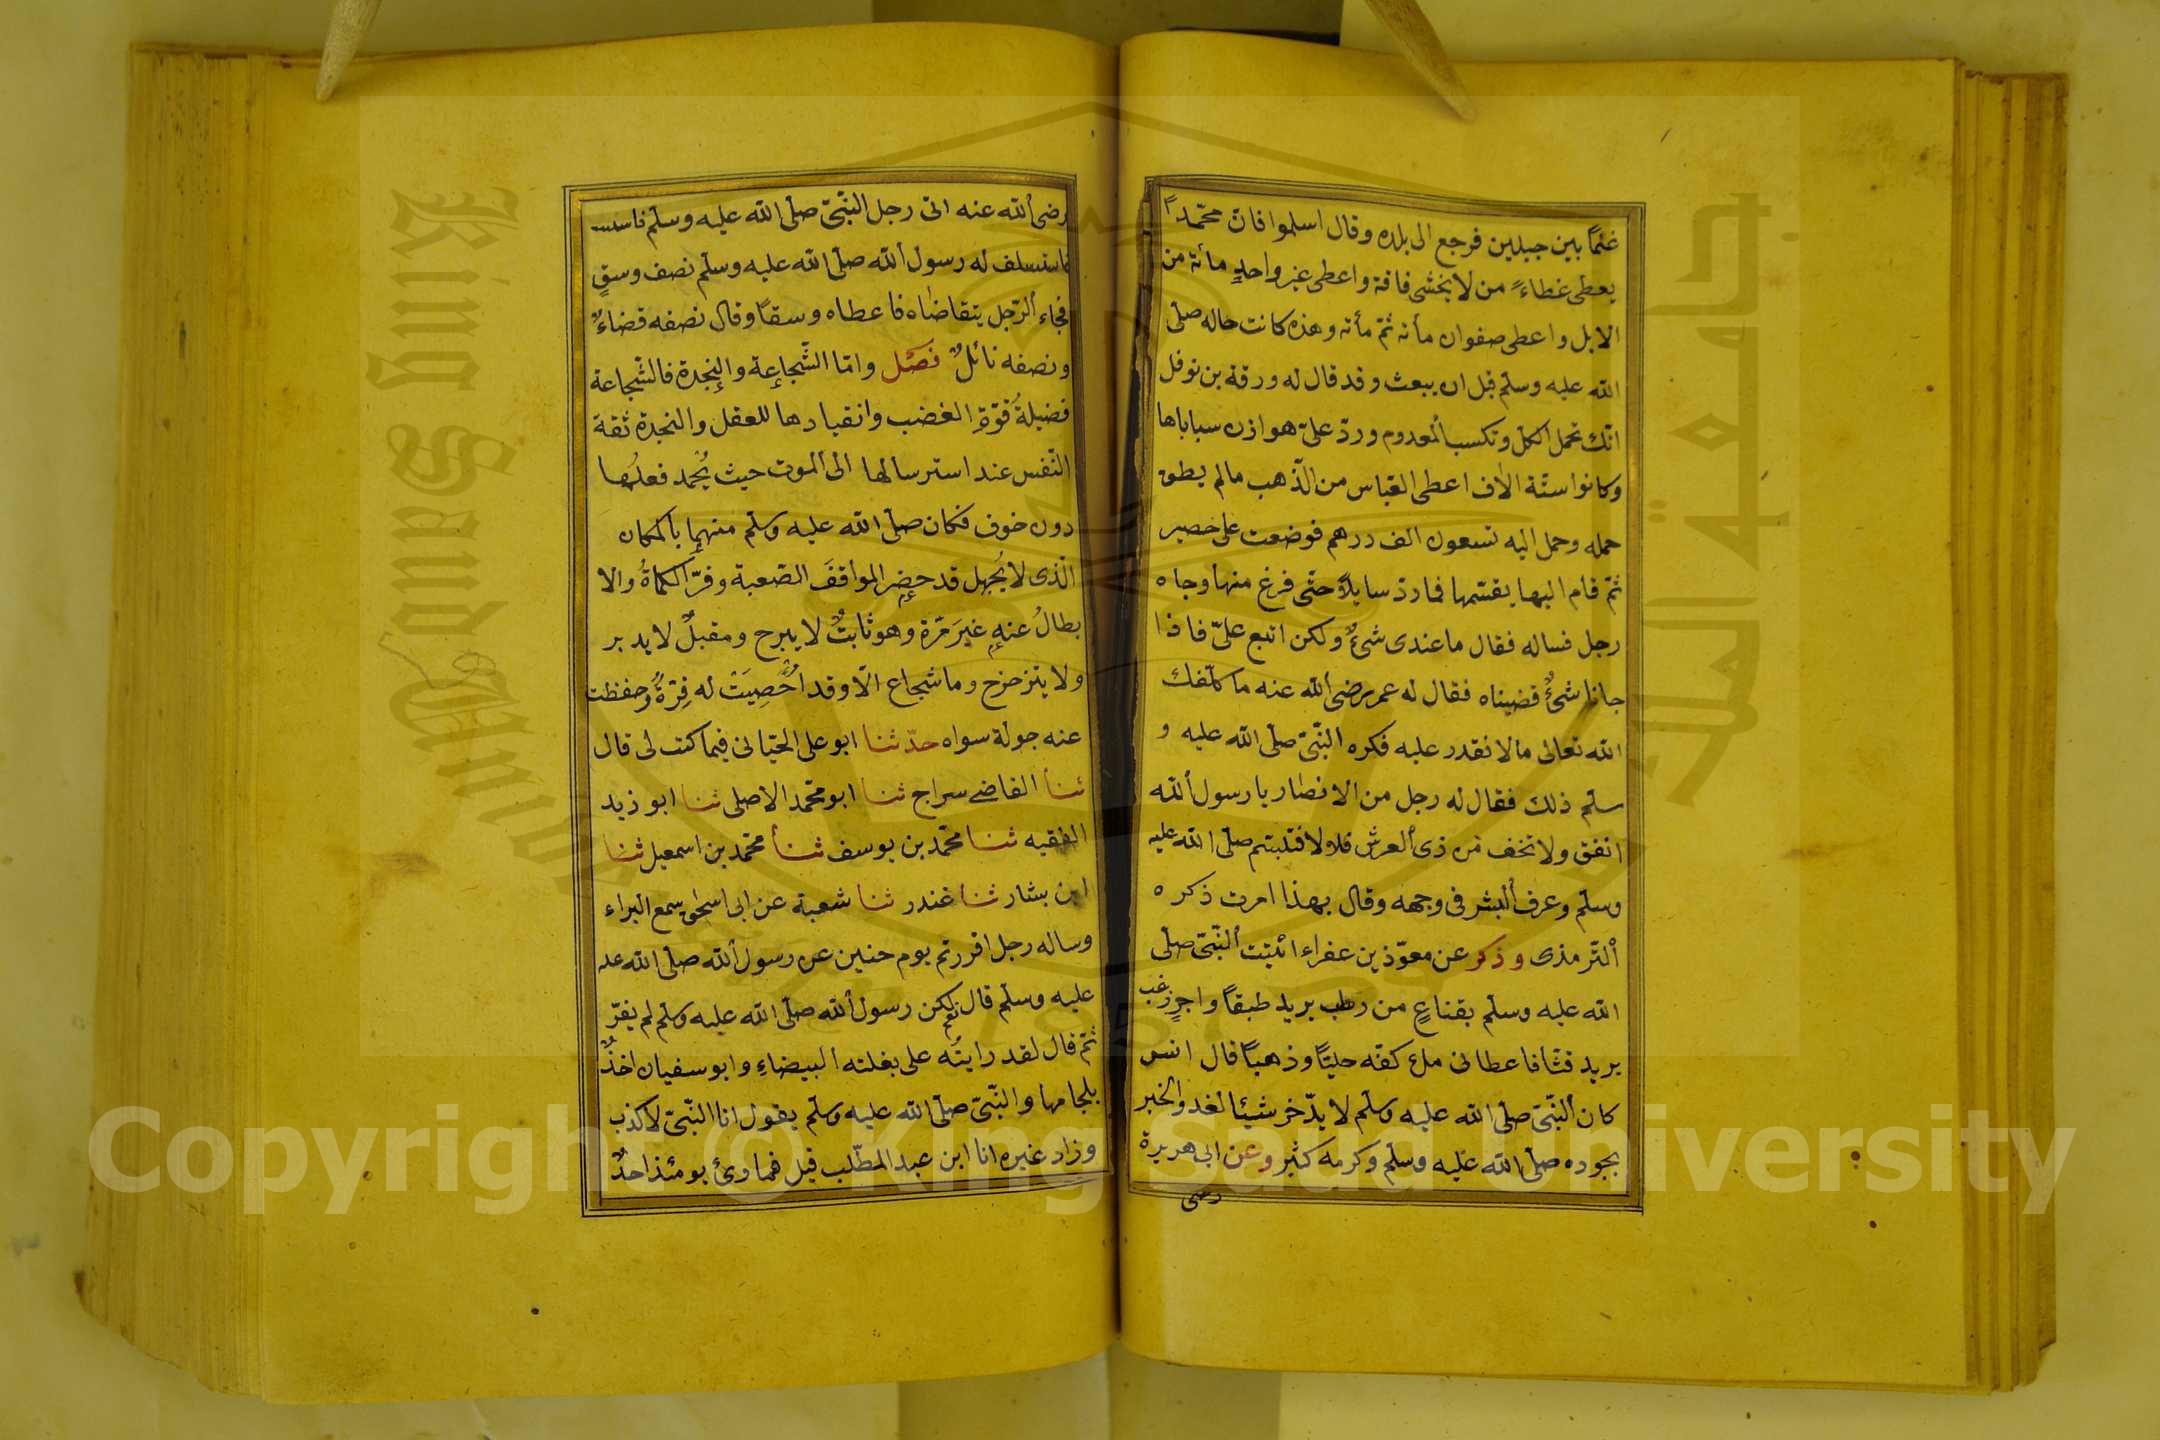 غنمًا بين جبلين فرجع الى بلده وقال اسلموا فان محمّدًا
يعطى عطاءً من لا يخشى فاقة واعطى غير واحدٍ مأئة من
الابل واعطى صفوان مأئه ثمّ مأئه وهذه كانت حاله صلّى
الله عليه وسلّم قبل ان يبعث وقد قال له ورقة بن نوفل
انّك تحمل الكلّ وتكسب المعدوم وردّ علىّ هوازن سباياها
وكانوا ستّة الاف اعطى العبّاس من الذّهب مالم يطق
حمله وحمل اليه تسعون الف درهم فوضعت على حصير
ثمّ قام اليها يقسّمها فمارّد سايلًا حتّى فرغ منها وجاه
رجل فساله فقال ما عندى شئٌ ولكن اتبع علىّ فاذا
جانا شئٌ قضيناه فقال له عمر رضى الله عنه ما كلّفك
الله تعالى مالا تقدر عليه فكره النّبىّ صلّى الله عليه و
سلّم ذلك فقال له رجل من الانصار يا رسول الله
انفق ولا تخف من ذى العرش قلالا فتبسّم صلّى الله عليه
وسلّم وعرف البشر فى وجهه وقال بهذا امرت ذكره
التّرمذى وذكر عن معوّذ بن عفراء اتيت النّبىّ صلّى
الله عليه وسلّم بقناعٍ من رطب يريد طبقًا واجرٍ زغب
يريد قثّا فاعطانى ملء كفّه حليًّا وذهبًا قال انس
كان النّبىّ صلّى الله عليه وسلّم لا يدّخر شيئا لغد والخبر
بجوده صلّى الله عليه وسلّم وكرمه كثير وعن ابى هريرة
رضى
رضى الله عنه اتى رجل النّبىّ صلّى الله عليه وسلّم
فاستسلف له رسول الله صلّى الله عليه وسلّم نصف وسقٍ
فجاء الرّجل يتقاضاه فاعطاه وسقًا وقال نصفه قضاءٌ
ونصفه نائلٌ فصل وامّا الشّجاعة والنّجدة فالشّجاعة
فضيلةُ قوّةِ الغضب وانقيادها للعقل والنجدة ثقة
النّفس عند استرسالها الى الموت حيث يُحمد فعلُها
دون خوف فكان صلّى الله عليه وسلّم منهما بالمكان
الّذى لا يُجهل قد حضر المواقفَ الصّعبة وفرّ الكماةُ والا
بطالُ عنه غيرَ مرّة وهو ثابتٌ لا يبرح ومقبلٌ لا يدبر
ولا يتزحزح وما شجاع الّا وقد اُحْصِيَتْ له فِرّةٌ وحفظت
عنه جولة سواه حدّثنا ابو على الجيّانى فيما كتب لى قال
ثنا القاضى سراج ثنا ابو محمّد الاصلى ثنا ابو زيد
الفقيه ثنا محمّد بن يوسف ثنا محمّد بن اسمعيل ثنا
ابن بشار ثنا غندر ثنا شعبة عن ابى اسحق سمع البراء
وساله رجل افررتم يوم حنين عن رسول الله صلّى الله عله
عليه وسلّم قال نعم لكن رسول الله صلّى الله عليه وسلّم لم يفرّ
ثمّ قال لقد رايتُه على بغلته البيضاءِ وابو سفيان اخذٌ
بلجامها والنّبىّ صلّى الله عليه وسلّم يقول انا النّبىّ لا كذب
وزاد غيره انا ابن عبد المطّلب قيل فما رئ يومئذ احدٌ
King Saud University
جامعة الملك سعود
1957
Copyright © King Saud University